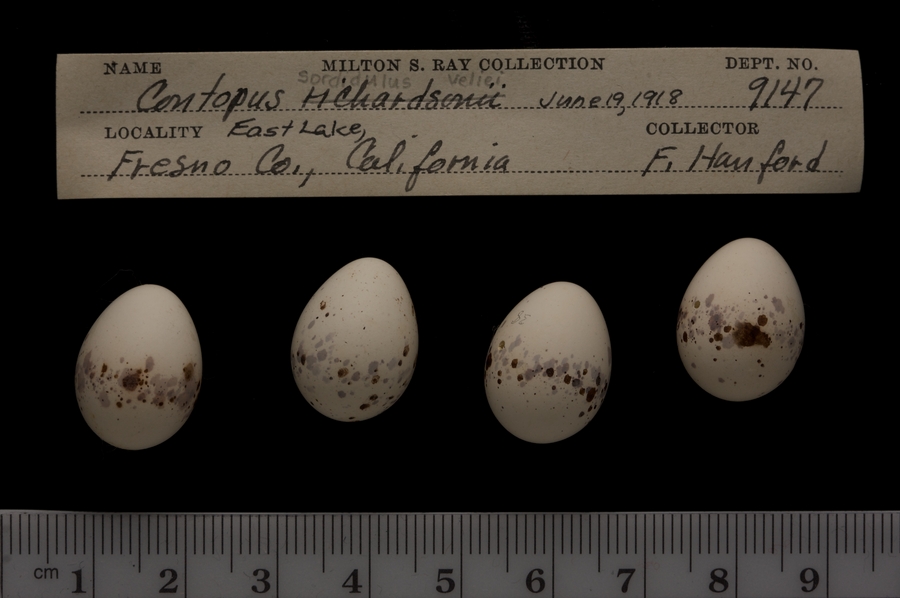 NAME MILTON S. RAY COLLECTION DEPT. NO.
sordidulus veliei
Contopus richardsonii June 19, 1918 9147
LOCALITY East Lake, COLLECTOR
Fresno Co., California F. Hanford
cm 1 2 3 4 5 6 7 8 9